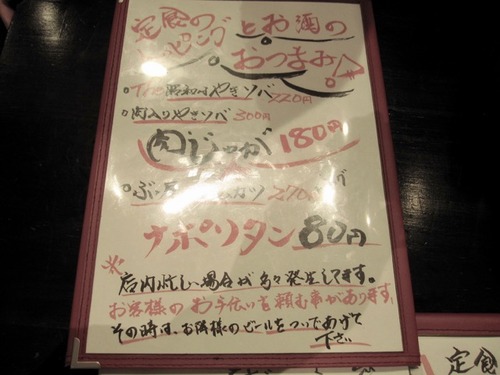 定食の とお酒の
おつまみ!
やきソバ 220円
肉入りやきソバ 300円
肉じゃが 180円
カツ 270円
ナポリタン 80円
※店内忙しい場合が多々発生してます。
お客様のお手伝いを頼む事があります。
その時は、お隣様のビールをついであげて
下さい
定食